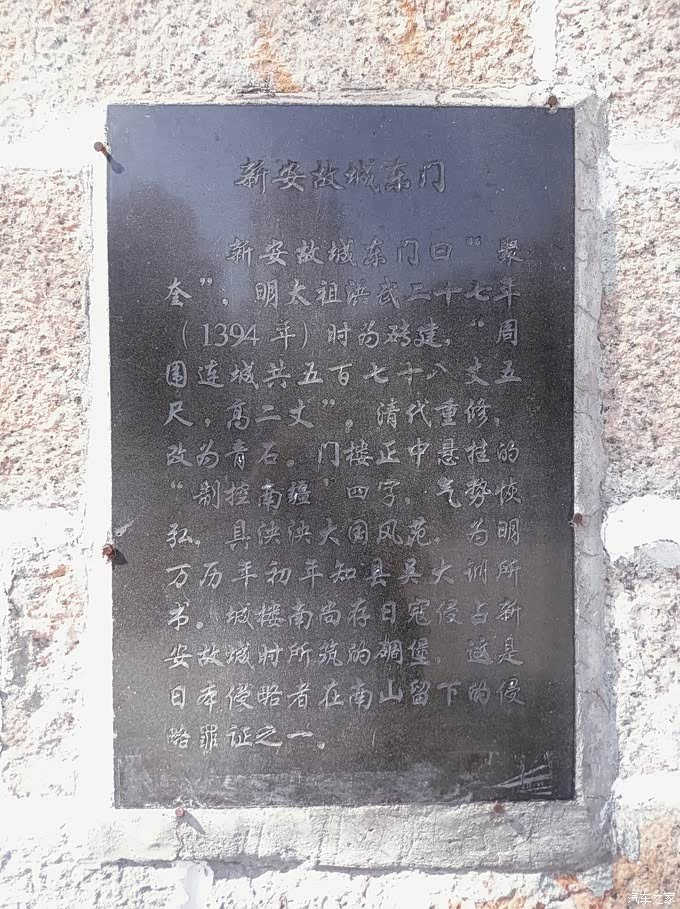 新安故城东门
新安故城东门曰“聚
奎”。明太祖洪武二十七年
(1394年)时为砖建，“周
围连城共五百七十八丈五
尺，高二丈”。清代重修，
改为青石。门楼正中悬挂的
“制控南疆”四字，气势恢
弘，具泱泱大国风范，为明
万历年初年知县吴大训所
书。城楼南尚存日寇侵占新
安故城时所筑的碉堡，这是
日本侵略者在南山留下的侵
略罪证之一。
汽车之家